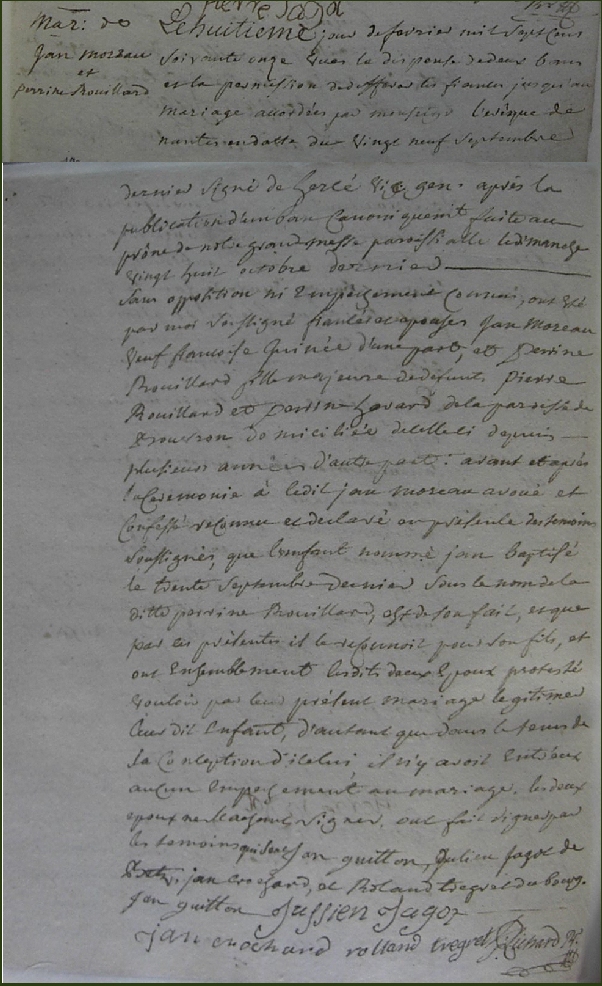 Pierre Jagu
Mar: de
Jan moreau
et
perrine Rouillard
Le huitieme jour de fevrier mil sept cens
soixante onze vues la dispense de deux bans
et la permission de differer les fiancés jusqu'au
mariage accordées par monseigr l'evêque de
nantes en datte du vingt neuf septembre
dernier signé de hercé vic. gen. après la
publication d'un ban canoniquemt faite au
prône de notre grandmesse paroissialle le dimanche
vingt huit octobre dernier
sans opposition ni empeschement connus, ont été
par moi soussigné fiancés et epousés Jan Moreau
veuf francoise d'une part, et Perrine
Rouillard fille majeure de defunts pierre
Rouillard et perrine de la paroisse de
domiciliée de celleci depuis
plusieurs années d'autre part: avant et après
la Ceremonie a ledit jan moreau avoué et
Confessé reconnu et declaré en présence des temoins
soussignés, que l'enfant nommé jan baptisé
le trente septembre dernier sous le nom de la
ditte perrine Rouillard, est de son fait, et que
par ces présentes il le reconnoit pour son fils, et
ont Ensemblement lesdits deux Epoux protesté
vouloir par leur présent mariage legitimer
leur dit Enfant, d'autant que dans le tems de
la Conception d'icelui il n'y avoit Entr'eux
aucun Empeschement au mariage. les deux
epoux ne sachant signer, ont fait signer par
les temoins qui sont jan guitton, Julien jagot de
jan crochard, et Roland tregret du bourg.
Jan guitton Jullien Jagot
jan crochard rolland tregret